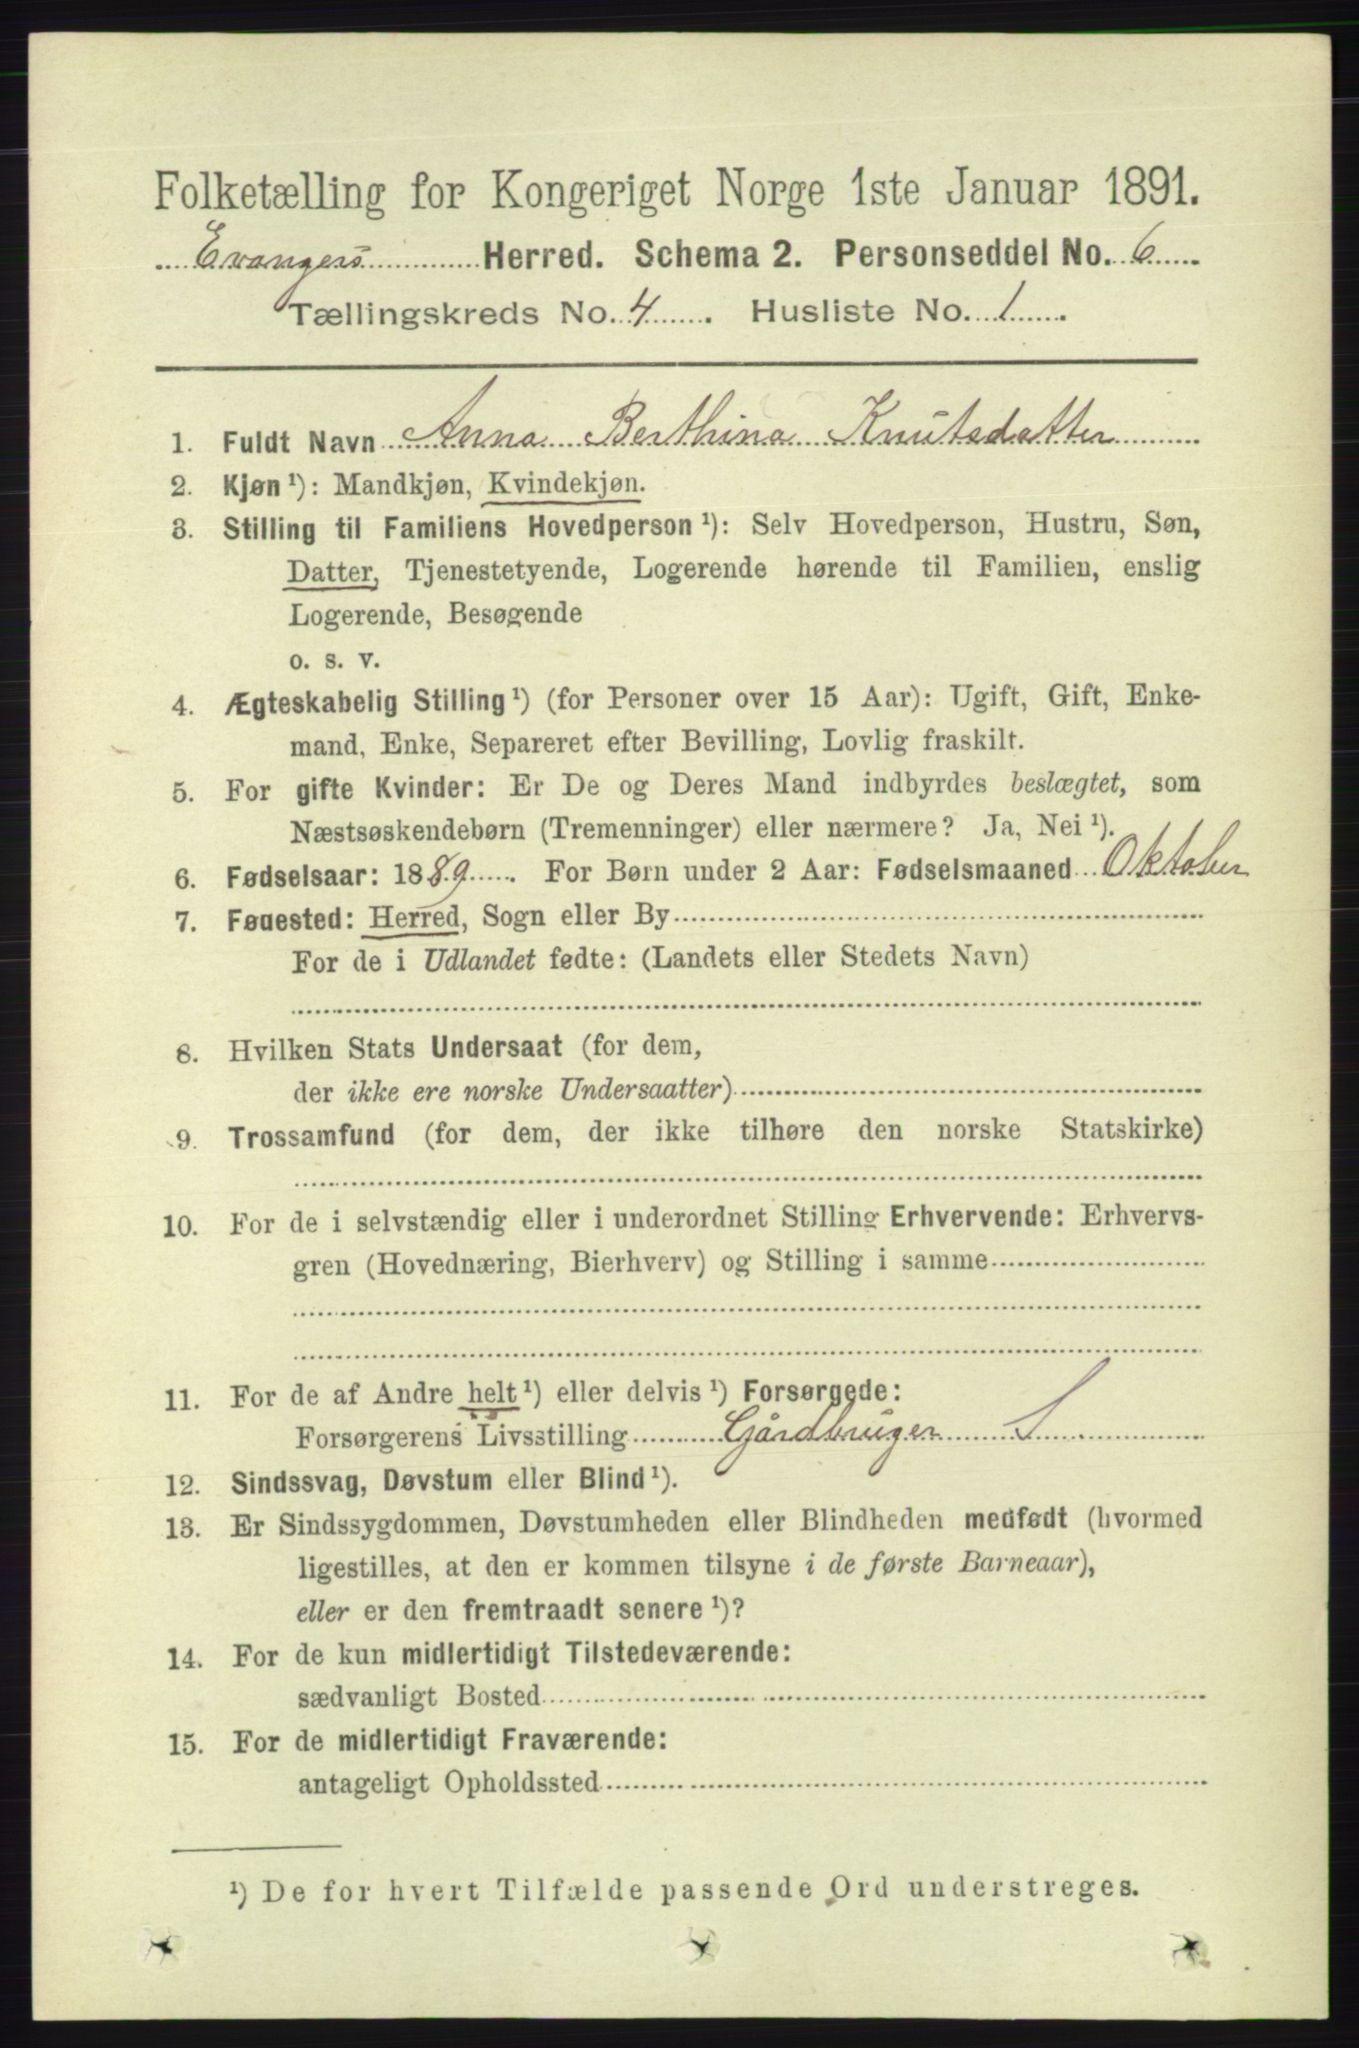 Folketælling for Kongeriget Norge 1ste Januar 1891.
Evangers Herred. Schema 2. Personseddel No. 6
Tællingskreds No. 4 . Husliste No. 1 .
1. Fuldt Navn Anna Berthina Knutsdatter
2. Kjøn ¹): Mandkjøn, Kvindekjøn.
3. Stilling til Familiens Hovedperson ¹): Selv Hovedperson, Hustru, Søn,
Datter, Tjenestetyende, Logerende hørende til Familien, enslig
Logerende, Besøgende
o. s. v.
4. Ægteskabelig Stilling ¹) (for Personer over 15 Aar): Ugift, Gift, Enke-
mand, Enke, Separeret efter Bevilling, Lovlig fraskilt.
5. For gifte Kvinder: Er De og Deres Mand indbyrdes beslægtet, som
Næstsøskendebørn (Tremenninger) eller nærmere? Ja, Nei ¹).
6. Fødselsaar: 1889 . For Børn under 2 Aar: Fødselsmaaned Oktober
7. Fødested: Herred, Sogn eller By
For de i Udlandet fødte: (Landets eller Stedets Navn)
8. Hvilken Stats Undersaat (for dem,
der ikke ere norske Undersaatter)
9. Trossamfund (for dem, der ikke tilhøre den norske Statskirke)
10. For de i selvstændig eller i underordnet Stilling Erhvervende: Erhvervs-
gren (Hovednæring, Bierhverv) og Stilling i samme
11. For de af Andre helt ¹) eller delvis ¹) Forsørgede:
Forsørgerens Livsstilling Gårdbruger S
12. Sindssvag, Døvstum eller Blind ¹).
13. Er Sindssygdommen, Døvstumheden eller Blindheden medfødt (hvormed
ligestilles, at den er kommen tilsyne i de første Barneaar),
eller er den fremtraadt senere ¹)?
14. For de kun midlertidigt Tilstedeværende:
sædvanligt Bosted
15. For de midlertidigt Fraværende:
antageligt Opholdssted
¹) De for hvert Tilfælde passende Ord understreges.